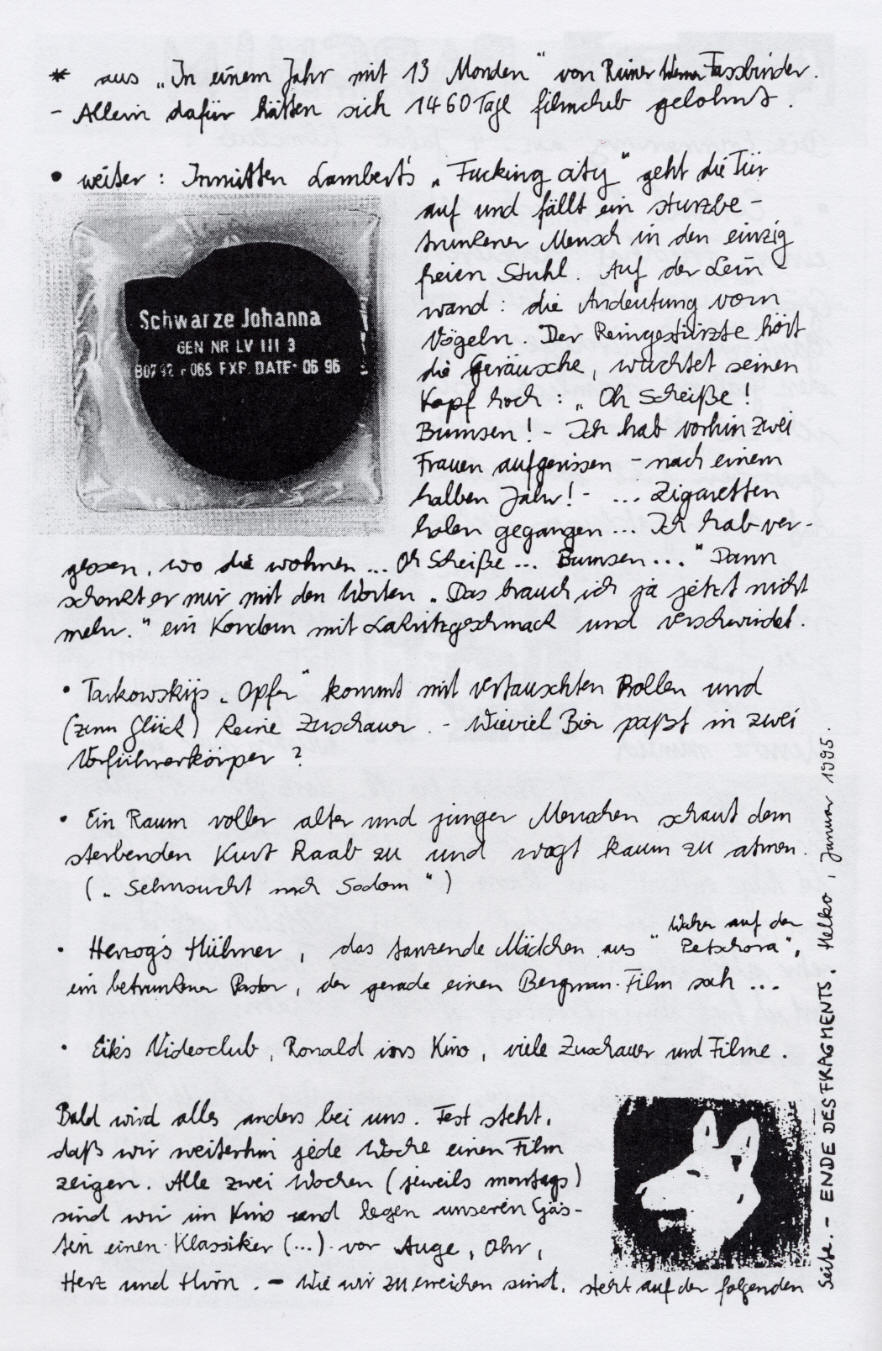 * aus „In einem Jahr mit 13 Monden" von Rainer Werner Fassbinder.
- Allein dafür hätten sich 1460 Tage filmclub gelohnt.
• weiter: Inmitten Lambert's „Fucking city" geht die Tür
auf und fällt ein sturzbe-
trunkener Mensch in den einzig
freien Stuhl. Auf der Lein-
wand: die Andeutung vom
Vögeln. Der Reingestürzte hört
die Geräusche, wuchtet seinen
Kopf hoch: „Oh Scheiße!
Bumsen! - Ich hab vorhin zwei
Frauen aufgerissen - nach einem
halben Jahr! - ... Zigaretten
holen gegangen ... Ich hab ver-
gessen, wo die wohnen ... Oh Scheiße ... Bumsen ..." Dann
schenkt er mir mit den Worten „Das brauch ich ja jetzt nicht
mehr." ein Kondom mit Lakritzgeschmack und verschwindet.
Schwarze Johanna
GEN NR LV III 3
065 EXP. DATE: 06 96
• Tarkowskijs „Opfer" kommt mit vertauschten Rollen und
(zum Glück) keine Zuschauer. - Wieviel Bier paßt in zwei
Vorführerkörper?
• Ein Raum voller alter und junger Menschen schaut dem
sterbenden Kurt Raab zu und wagt kaum zu atmen.
(„Sehnsucht nach Sodom")
• Herzog's Hühner, das tanzende Mädchen aus " auf der Petschora",
ein betrunkener Pastor, der gerade einen Bergman-Film sah ...
• Eik's Videoclub, Ronald ins Kino, viele Zuschauer und Filme.
Bald wird alles anders bei uns. Fest steht,
daß wir weiterhin jede Woche einen Film
zeigen. Alle zwei Wochen (jeweils montags)
sind wir im Kino und legen unseren Gäs-
ten einen Klassiker (...) vor Auge, Ohr,
Herz und Hirn. - Wie wir zu erreichen sind, steht auf der folgenden
Seite. - ENDE DES FRAGMENTS. Helko, Januar 1995.